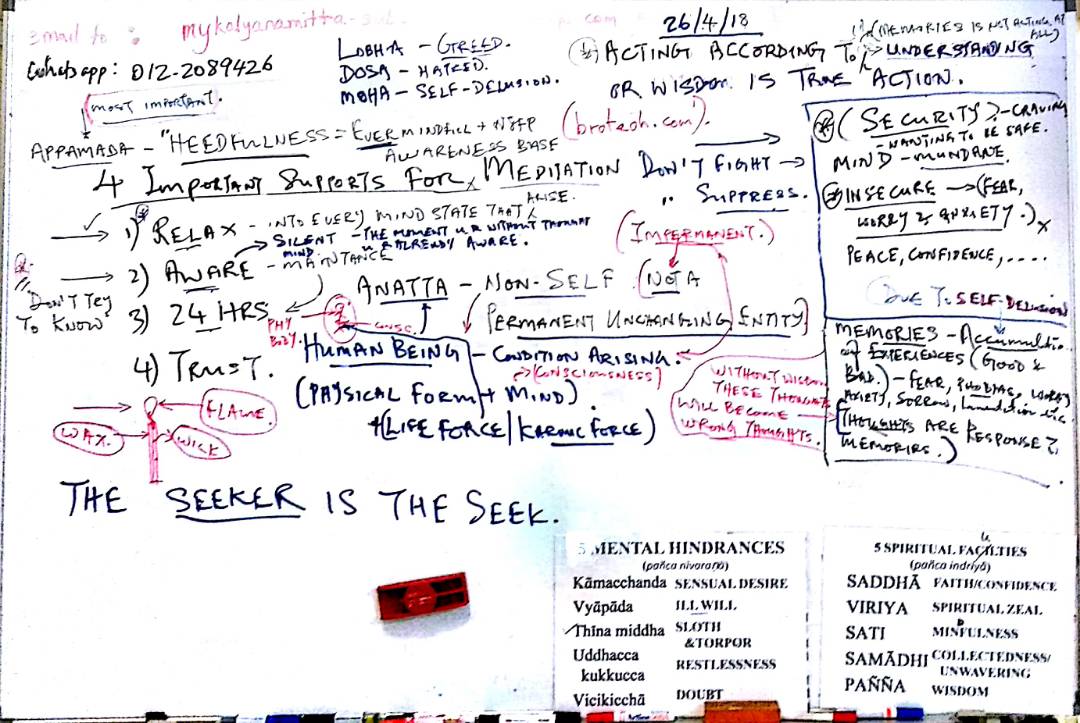 Email to : mykalyanamitta-
Whatsapp: 012-2089426
26/4/18
LOBHA - GREED.
DOSA - HATRED.
MOHA - SELF-DELUSION.
(MEMORIES IS NOT ACTING AT ALL)
ACTING ACCORDING TO UNDERSTANDING
OR WISDOM IS TRUE ACTION.
MOST IMPORTANT.
APPAMADA - "HEEDFULNESS = EVER MINDFUL +
AWARENESS BASE
(broteoh.com).
4 IMPORTANT SUPPORTS FOR MEDITATION
DON'T FIGHT →
" SUPPRESS.
→ 1) RELAX - INTO EVERY MIND STATE THAT ARISE.
SILENT MIND - THE MOMENT U R WITHOUT THOUGHT
U R ALREADY AWARE.
→ 2) AWARE - MAINTANCE
DON'T TRY
TO KNOW
3) 24 HRS
4) TRUST.
(IMPERMANENT.)
ANATTA - NON-SELF (NOT A
PERMANENT UNCHANGING ENTITY)
PHY
BODY.
CONSC.
HUMAN BEING - CONDITION ARISING.
→ (CONSCIOUSNESS)
(PHYSICAL FORM + MIND)
+ (LIFE FORCE/KARMIC FORCE)
WITHOUT WISDOM
THESE THOUGHTS
WILL BECOME
WRONG THOUGHTS.
FLAME.
WAX.
WICK
THE SEEKER IS THE SEEK.
(SECURITY) - CRAVING
- WANTING TO BE SAFE.
MIND - MUNDANE.
INSECURE → (FEAR,
WORRY & ANXIETY.)
PEACE, CONFIDENCE, ....
DUE TO SELF-DELUSION
MEMORIES - Accumulation
of EXPERIENCES (GOOD &
BAD.) - FEAR, PHOBIAS, WORRY
ANXIETY, SORROW,
THOUGHTS ARE RESPONSE TO
MEMORIES.)
5 MENTAL HINDRANCES
(pañca nivaraṇa)
Kāmacchanda SENSUAL DESIRE
Vyāpāda ILL WILL
Thina middha SLOTH
& TORPOR
Uddhacca
kukkucca RESTLESSNESS
Vicikicchā DOUBT
5 SPIRITUAL FACILTIES
(pañca indriyā)
SADDHĀ FAITH/CONFIDENCE
VIRIYA SPIRITUAL ZEAL
SATI MINFULNESS
SAMĀDHI COLLECTEDNESS/
UNWAVERING
PAÑÑA WISDOM